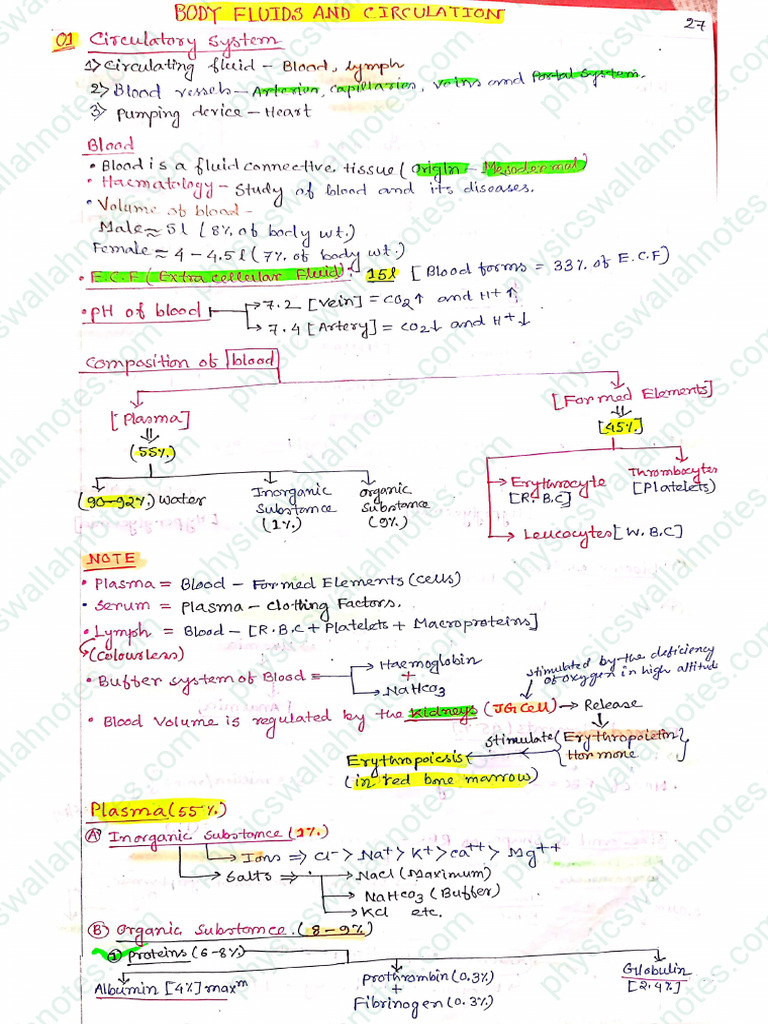 BODY FLUIDS AND CIRCULATION
27
01 Circulatory System
1) Circulating fluid - Blood, lymph
2) Blood vessels - Arteries, capillaries, veins and Portal System.
3) Pumping device - Heart
Blood
• Blood is a fluid connective tissue (Origin - Mesodermal)
• Haematology - Study of blood and its diseases.
• Volume of blood -
Male ≈ 5l (8% of body wt.)
Female ≈ 4 - 4.5l (7% of body wt.)
• E.C.F (Extra cellular Fluid): 15l [Blood forms = 33% of E.C.F)
• pH of blood → 7.2 [Vein] = CO2↑ and H+↑
→ 7.4 [Artery] = CO2↓ and H+↓
Composition of blood
[Plasma] [Formed Elements]
(55%) [45%]
(90-92%) Water
Inorganic Substance (1%)
Organic Substance (9%)
→ Erythrocyte [R.B.C]
Thrombocytes [Platelets)
→ Leucocytes [W.B.C]
NOTE
• Plasma = Blood - Formed Elements (cells)
• Serum = Plasma - Clotting Factors.
• Lymph = Blood - [R.B.C + Platelets + Macroproteins]
(Colourless)
• Buffer system of Blood = → Haemoglobin
+
→ NaHCO3
stimulated by the deficiency of oxygen in high altitud
• Blood Volume is regulated by the Kidneys (JG Cell) → Release
Erythropoiesis (in red bone marrow) ← stimulate (Erythropoietin Hormone
Plasma (55%)
A) Inorganic Substance (1%)
→ Ions ⇒ Cl- > Na+ > K+ > Ca++ > Mg++
→ Salts ⇒ → NaCl (Maximum)
→ NaHCO3 (Buffer)
→ KCl etc.
B) Organic Substance. (8-9%)
① Proteins (6-8%)
Albumin [4%] maxm
Prothrombin (0.3%)
+
Fibrinogen (0.3%)
Globulin [2.4%]
physicswallahnotes.com